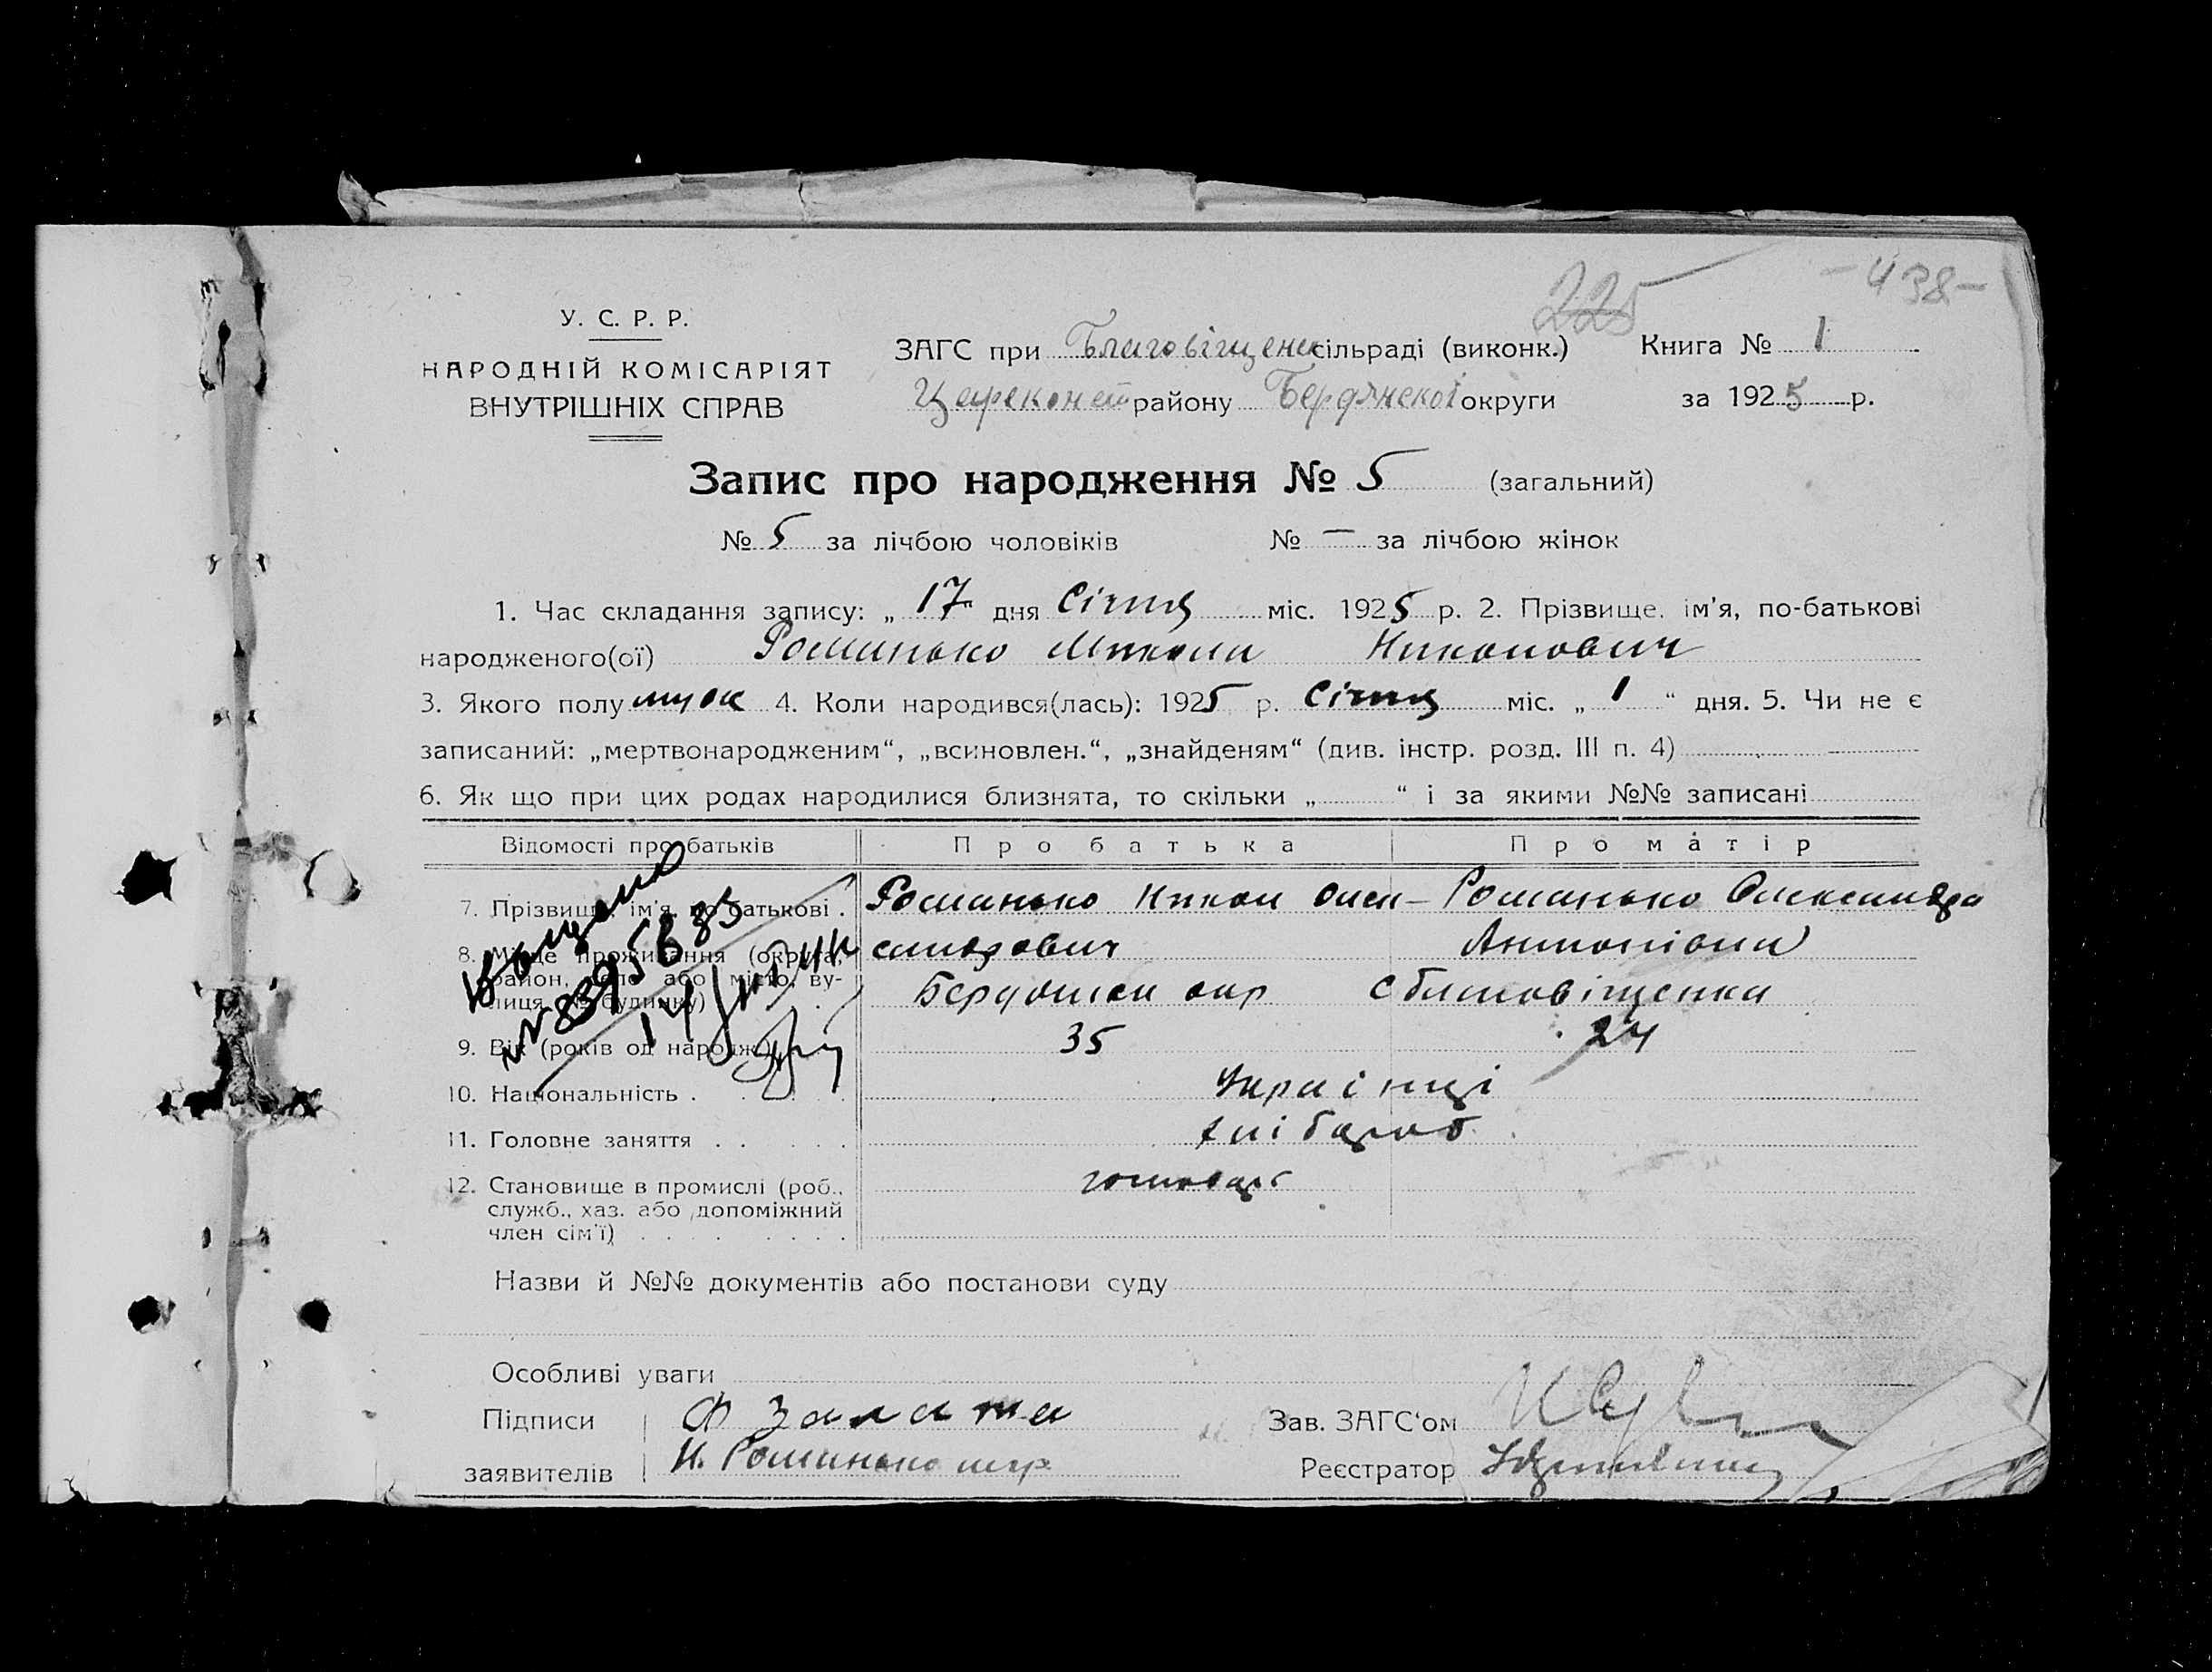 225 -438-
У. С. Р. Р.
НАРОДНІЙ КОМІСАРІЯТ
ВНУТРІШНІХ СПРАВ
ЗАГС при Благовіщенс сільраді (виконк.) Книга № 1
Цареконст району Бердянської округи за 1925 р.
Запис про народження № 5 (загальний)
№ 5 за лічбою чоловіків № — за лічбою жінок
1. Час складання запису: „ 17 " дня Січня міс. 1925 р. 2. Прізвище, ім'я, по-батькові
народженого(ої) Романько Микола Никонович
3. Якого полу муж 4. Коли народився(лась): 1925 р. Січня міс. „ 1 " дня. 5. Чи не є
записаний: „мертвонародженим", „всиновлен.", „знайденям" (див. інстр. розд. III п. 4)
6. Як що при цих родах народилися близнята, то скільки „ " і за якими №№ записані
Відомості про батьків Про батька Про матір
7. Прізвище, ім'я, по-батькові . Романько Никон Олек- Романько Олександра
8. Місце проживання (округа, район, село або місто, вулиця, № будинку) сандрович Антонівна
Бердянськ окр с Благовіщенка
9. Вік (років од народж.) 35 24
10. Національність . Українці
11. Головне заняття . . . . . хлібороб
12. Становище в промислі (роб., господар
служб., хаз. або допоміжний
член сім'ї) . . . . . . .
№ 8395685
Назви й №№ документів або постанови суду
Особливі уваги
Підписи Ф Залата Зав. ЗАГС'ом
заявителів Н. Романько Реєстратор